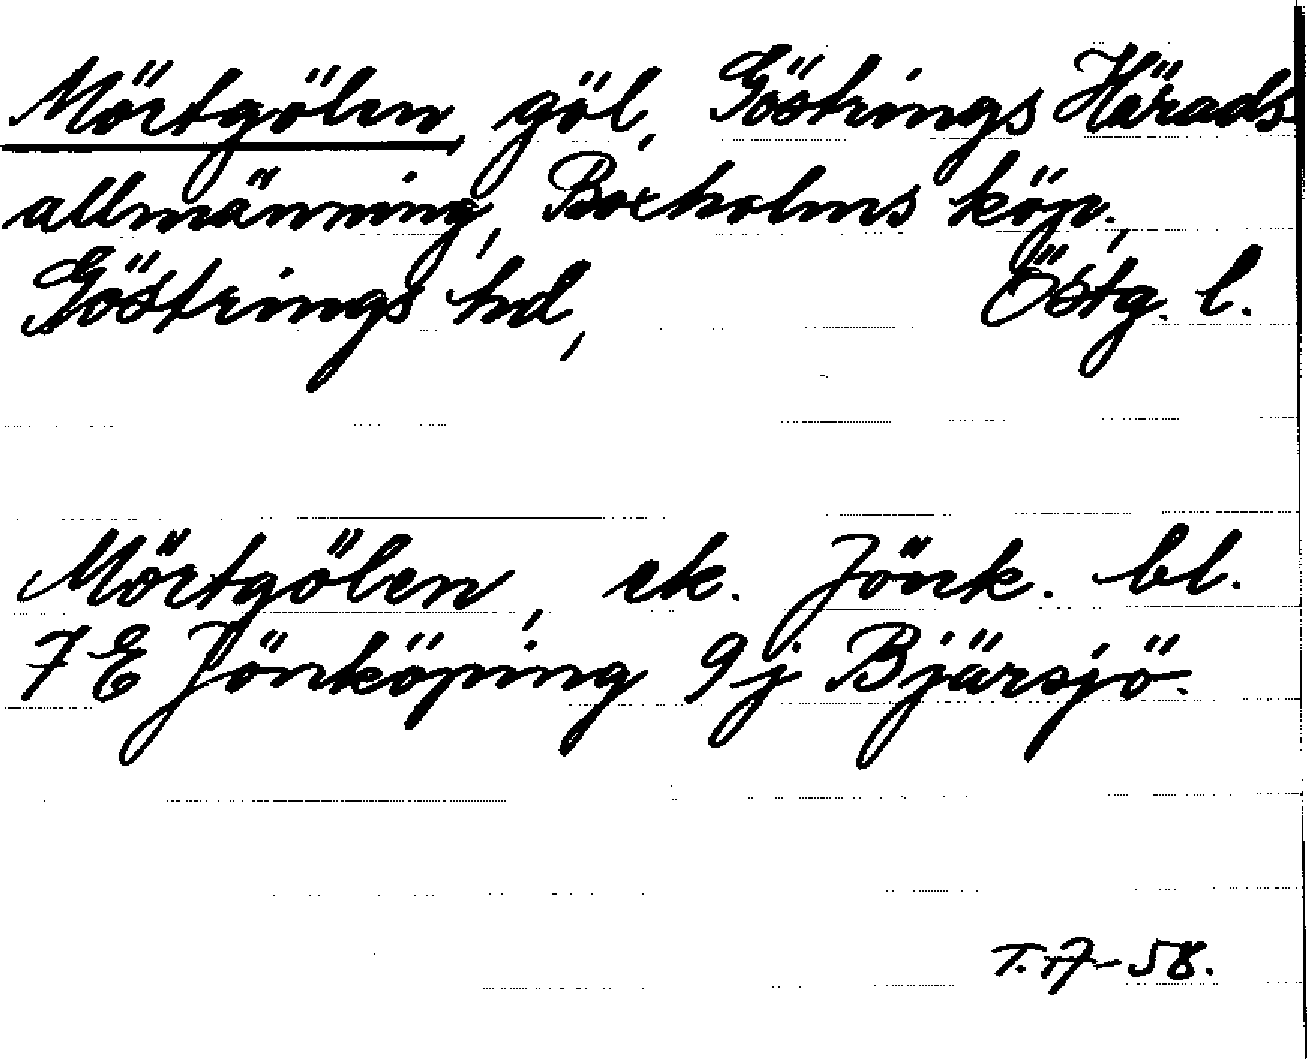 Mörtgölen, göl, Göstrings Härads
allmänning, Boxholms köp.,
Göstrings hd, Östg. l.
Mörtgölen, ek. Jönk. bl.
7 E Jönköping 9j Bjärsjö.
T. 17-58.